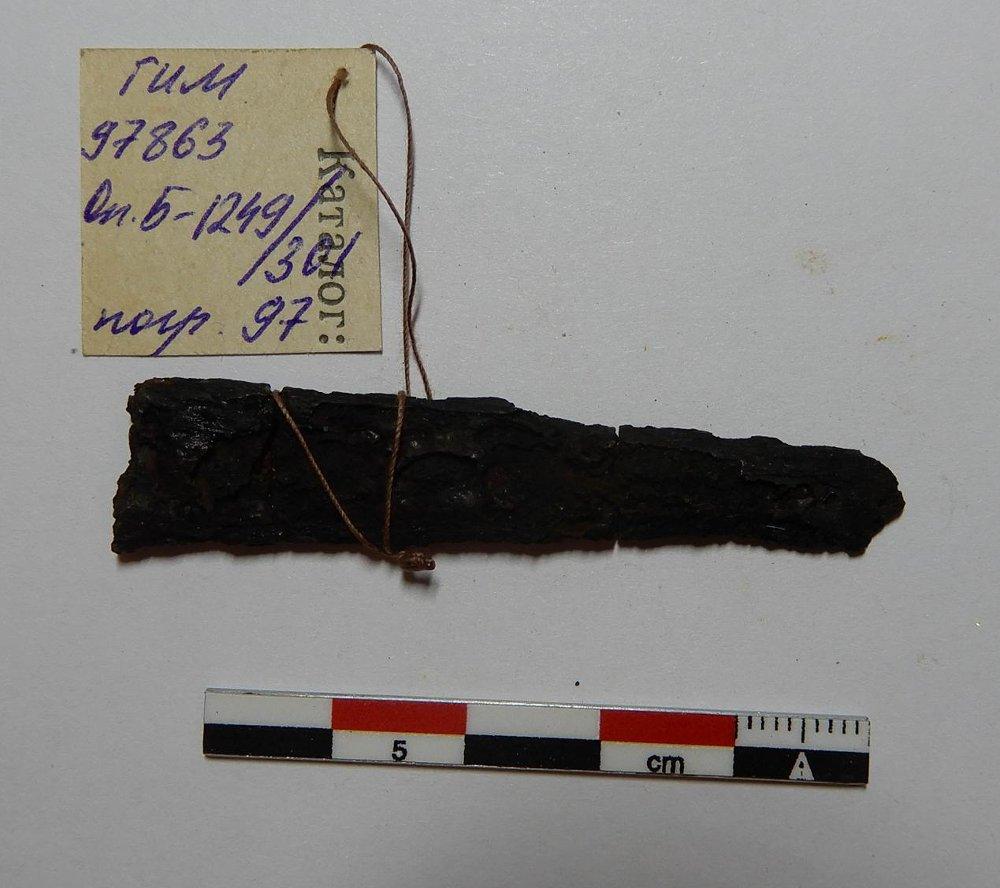 ГИМ
97863
Оп. Б-1249/
/301
погр. 97
Каталог:
5
cm
A